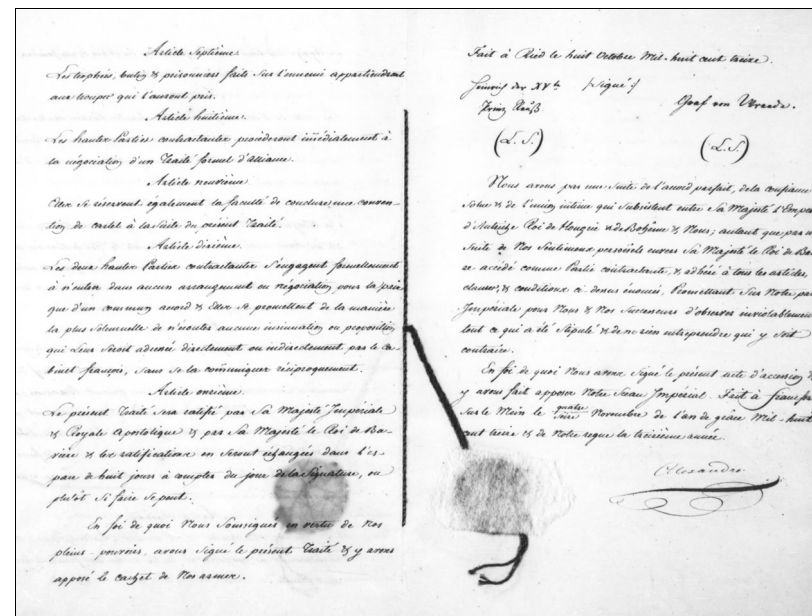 Article Septième.
Les trophées, butin & prisonniers faits sur l'ennemi appartiendront
aux troupes qui l'auront pris.
Article huitième.
Les hautes Parties contractantes procéderont immédiatement à
la négociation d'un Traité formel d'alliance.
Article neuvième.
Elles se réservent également la faculté de conclure une conven-
tion de cartel à la suite du présent Traité.
Article dixième.
Les deux hautes Parties contractantes s'engagent formellement
à n'entrer dans aucun arrangement ou négociation pour la paix
que d'un commun accord & Elles se promettent de la manière
la plus solemnelle de n'écouter aucune insinuation ou proposition
qui Leur seroit adressée directement ou indirectement par le Ca-
binet françois, sans se la communiquer réciproquement.
Article onzième.
Le présent Traité sera ratifié par Sa Majesté Impériale
& Royale Apostolique & par Sa Majesté le Roi de Ba-
vière & les ratifications en seront échangées dans l'es-
pace de huit jours à compter du jour de la Signature, ou
plutôt si faire se peut.
En foi de quoi Nous Soussignés en vertu de Nos
pleins-pouvoirs, avons signé le présent Traité & y avons
apposé le cachet de Nos armes.
Fait à Ried le huit Octobre Mil-huit cent treize.
Heinrich der XVte (signé)
Prinz Reuß
Graf von Wrede.
(L. S.)
(L. S.)
Nous avons par une suite de l'accord parfait, de la confiance
& de l'union intime qui subsistent entre Sa Majesté l'Emp
d'Autriche Roi de Hongrie & de Bohême & Nous; autant que par
suite de Nos Sentimens personels envers Sa Majesté le Roi de Ba
accédé comme Partie contractante, & adhéré à tous les articles,
clauses, & conditions ci-dessus énoncés, Promettant Sur Notre
Impériale pour Nous & Nos Successeurs d'observer inviolablement
tout ce qui a été stipulé & de ne rien entreprendre qui y soit
contraire.
En foi de quoi Nous avons signé le présent acte d'accession &
y avons fait apposer Notre Sceau Impérial. Fait à
sur le Mein le quatre Novembre de l'an de grâce Mil-huit
cent treize & de Notre regne la treizième année.
Alexandre